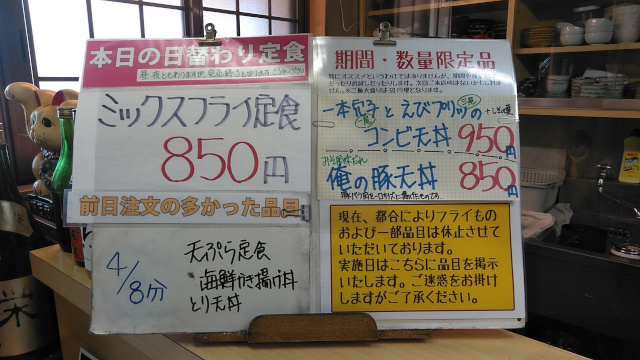 本日の日替わり定食
ミックスフライ定食
850円
前日注文の多かった品目
4/8分
天ぷら定食
海鮮かき揚げ丼
とり天丼
期間・数量限定品
一本穴子とえびプリッツの
コンビ天丼 950円
俺の豚天丼 850円
現在、都合によりフライもの
および一部品目は休止させて
いただいております。
実施日はこちらに品目を掲示
いたします。ご迷惑をお掛け
しますがご了承ください。
栄